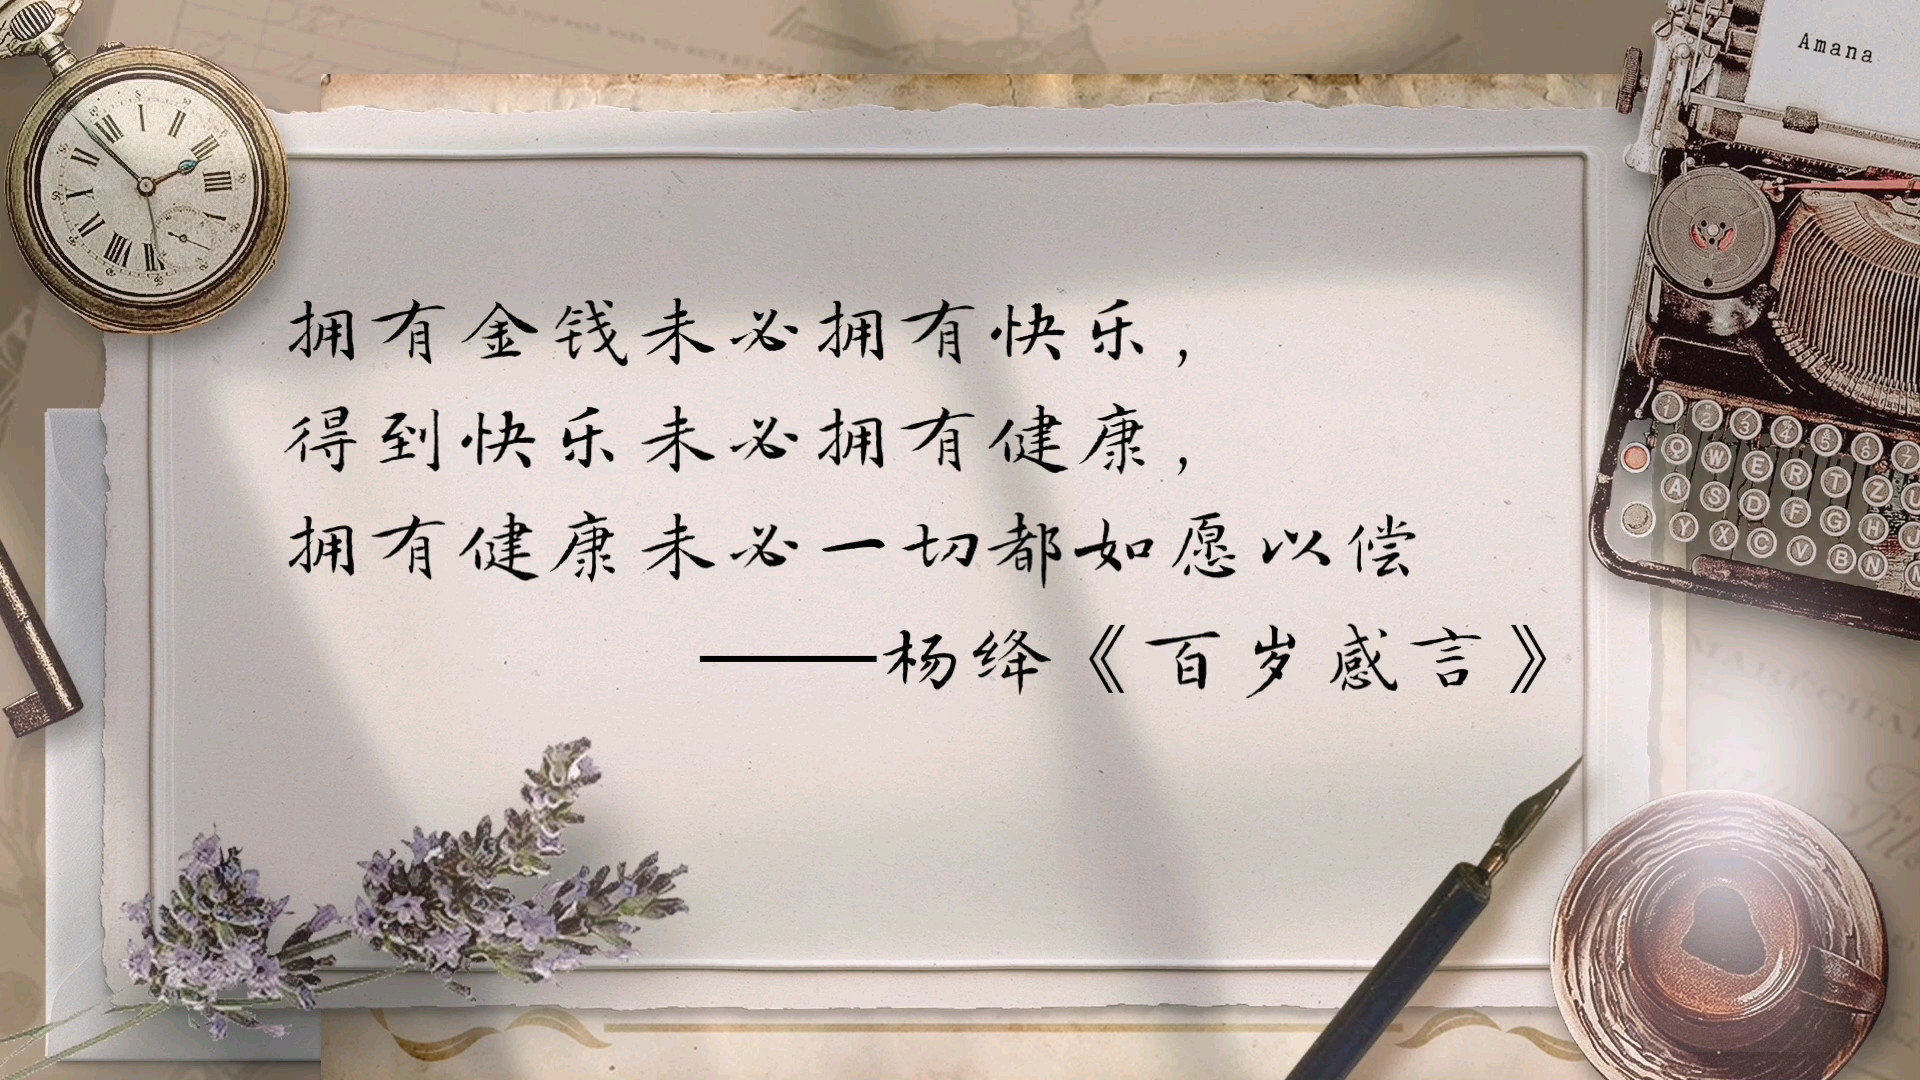 Amana
拥有金钱未必拥有快乐，
得到快乐未必拥有健康，
拥有健康未必一切都如愿以偿
——杨绛《百岁感言》
1 2 3 4 5 6 7
Q W E R T Z U
A S D F G H J
Y X C V B N